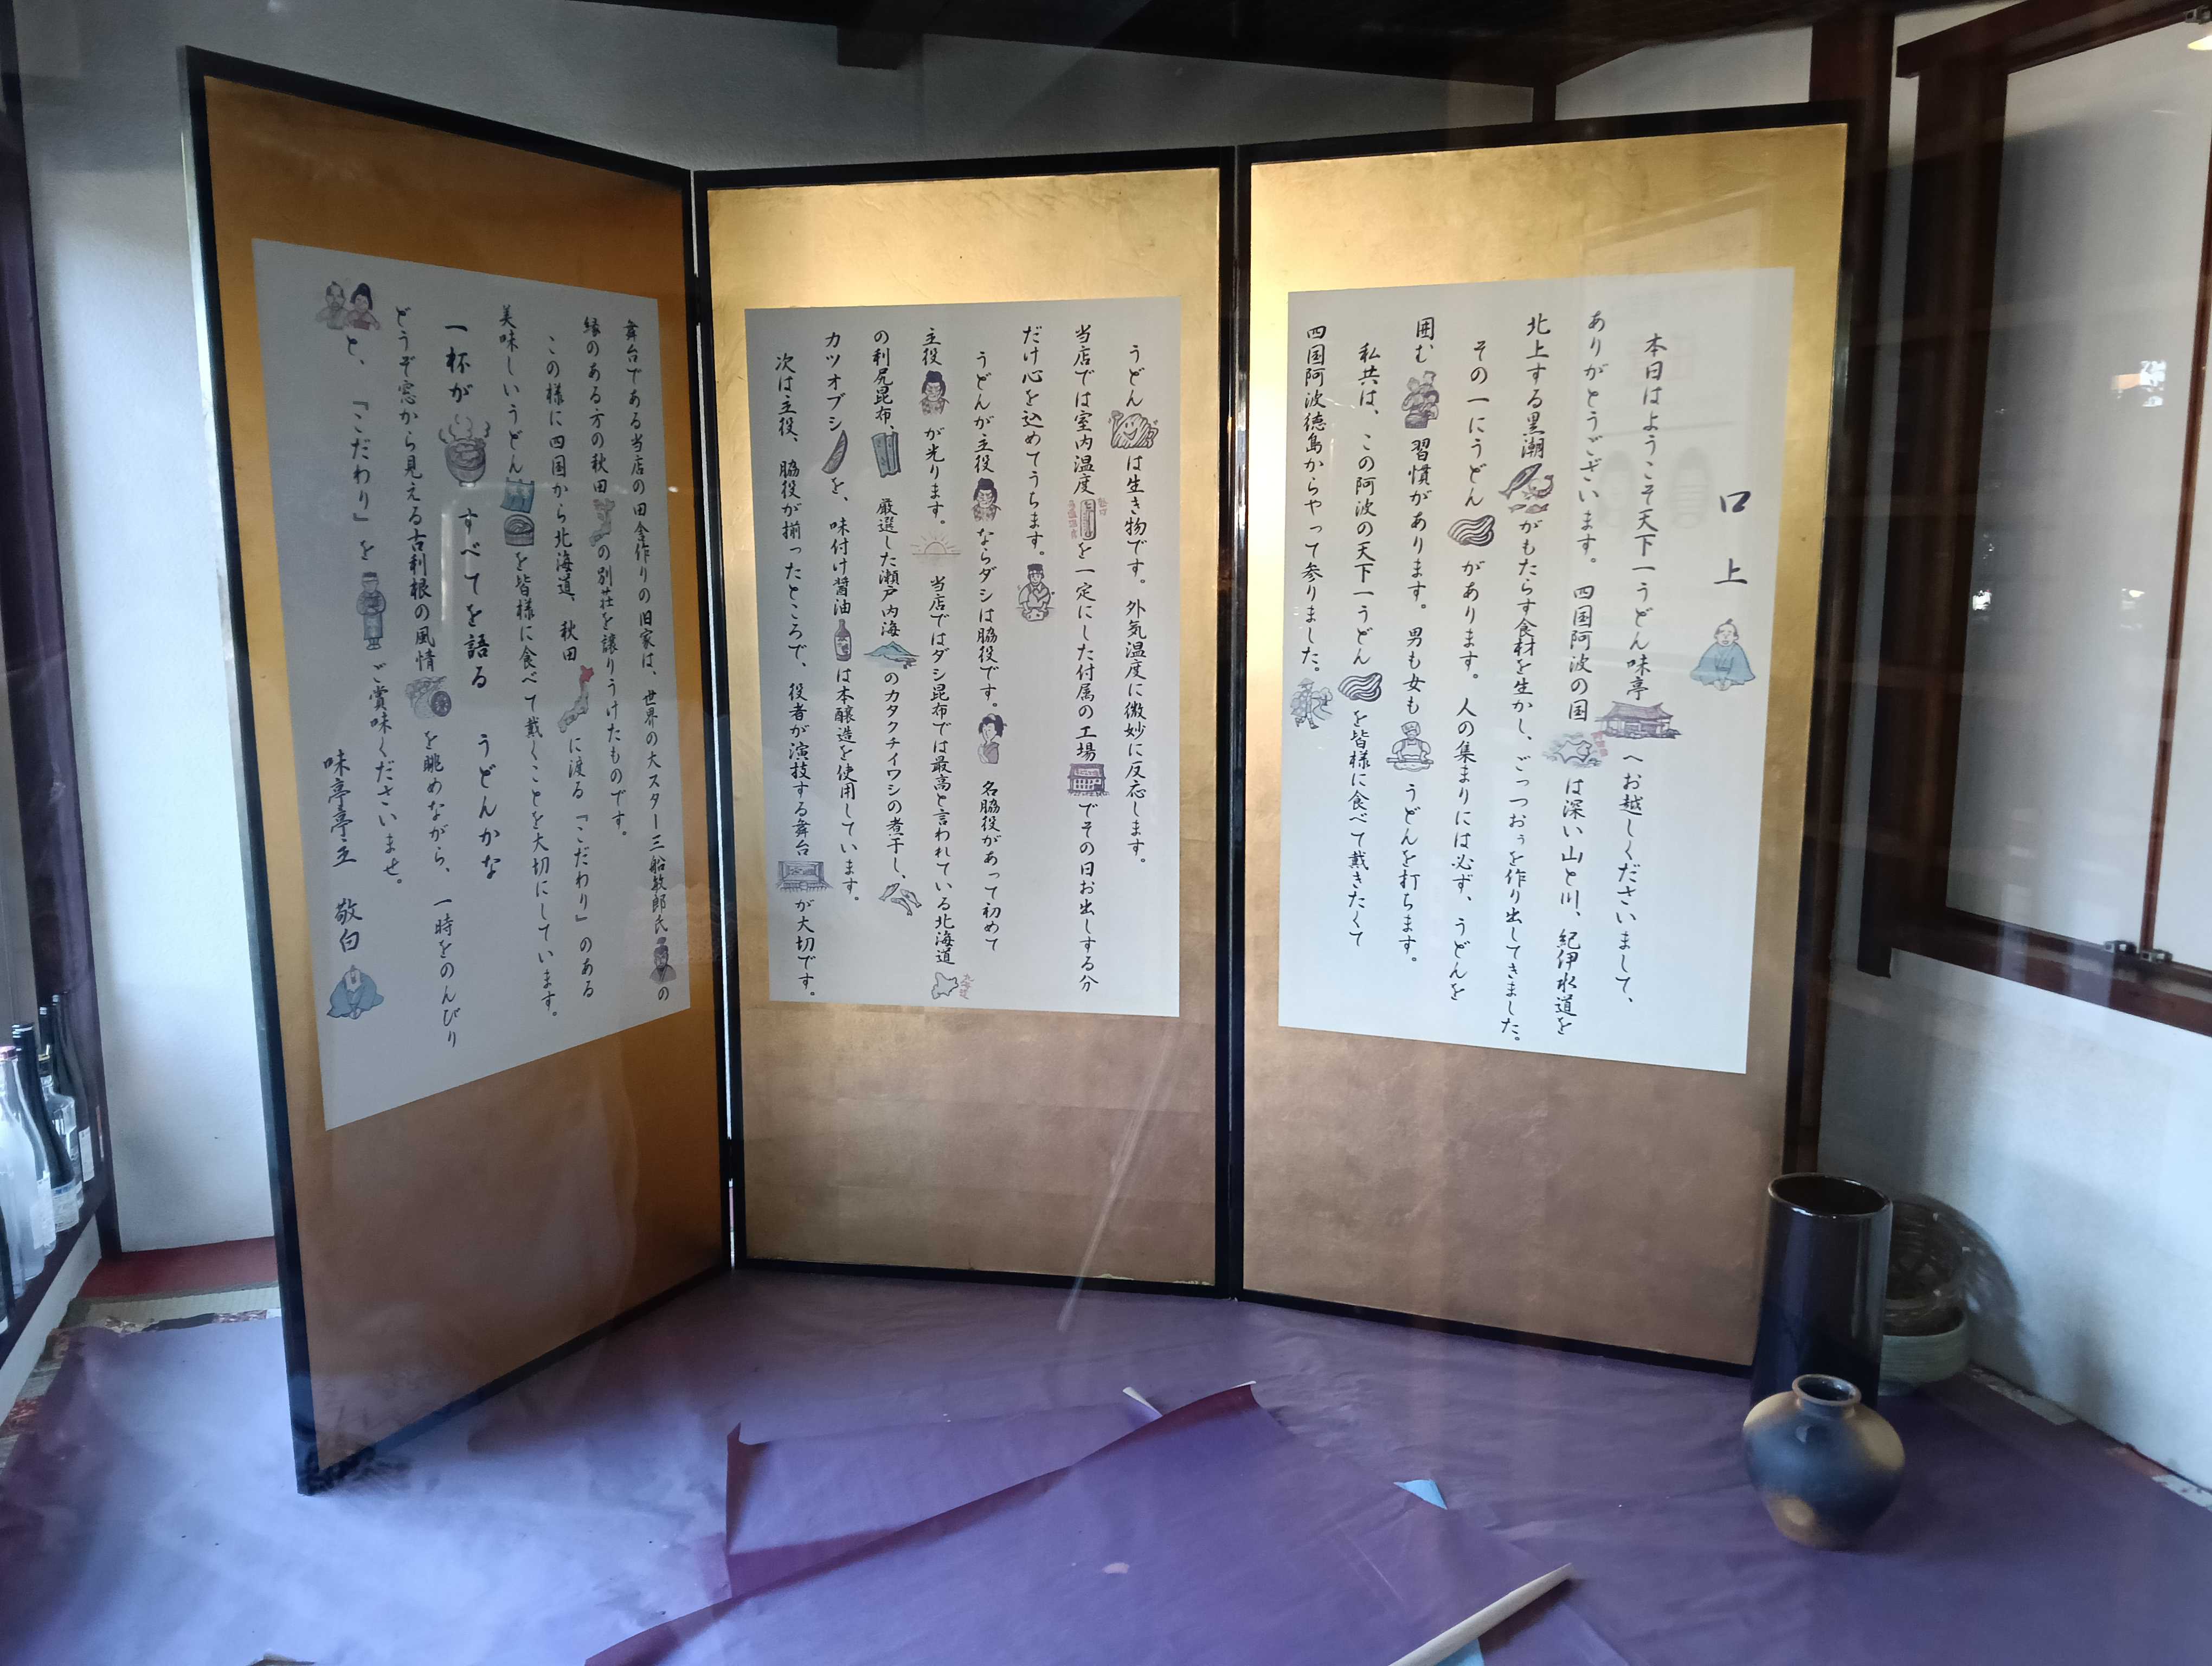 口上
本日はようこそ天下一うどん味亭へお越しくださいまして、
ありがとうございます。四国阿波の国は深い山と川、紀伊水道を
北上する黒潮がもたらす食材を生かし、ごっつおぅを作り出してきました。
その一にうどんがあります。人の集まりには必ず、うどんを
囲む習慣があります。男も女もうどんを打ちます。
私共は、この阿波の天下一うどんを皆様に食べて戴きたくて
四国阿波徳島からやって参りました。
うどんは生き物です。外気温度に微妙に反応します。
当店では室内温度を一定にした付属の工場でその日お出しする分
だけ心を込めてうちます。
うどんが主役ならダシは脇役です。名脇役があって初めて
主役が光ります。当店ではダシ昆布では最高と言われている北海道
の利尻昆布、厳選した瀬戸内海のカタクチイワシの煮干し、
カツオブシを、味付け醤油は本醸造を使用しています。
次は主役、脇役が揃ったところで、役者が演技する舞台が大切です。
舞台である当店の田舎作りの旧家は、世界の大スター三船敏郎氏の
縁のある方の秋田の別荘を譲りうけたものです。
この様に四国から北海道、秋田に渡る『こだわり』のある
美味しいうどんを皆様に食べて戴くことを大切にしています。
一杯がすべてを語るうどんかな
どうぞ窓から見える古利根の風情を眺めながら、一時をのんびり
と、『こだわり』をご賞味くださいませ。
味亭亭主 敬白